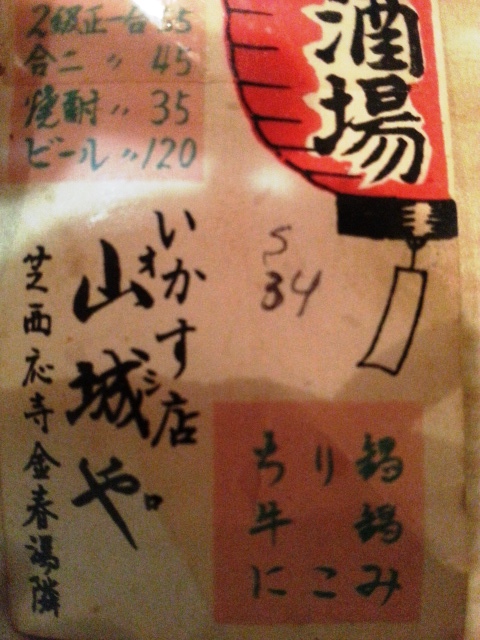 酒場
2級正一合65
合二〃45
焼酎〃35
ビール〃120
S
34
いかす店
山城や
オシロ
芝西応寺金春湯隣
ちり鍋
牛鍋
にこみ